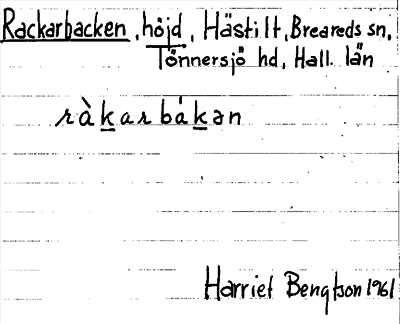 Rackarbacken, höjd, Hästilt, Breareds sn,
Tönnersjö hd, Hall. län
ràkarbákən
Harriet Bengtson 1961